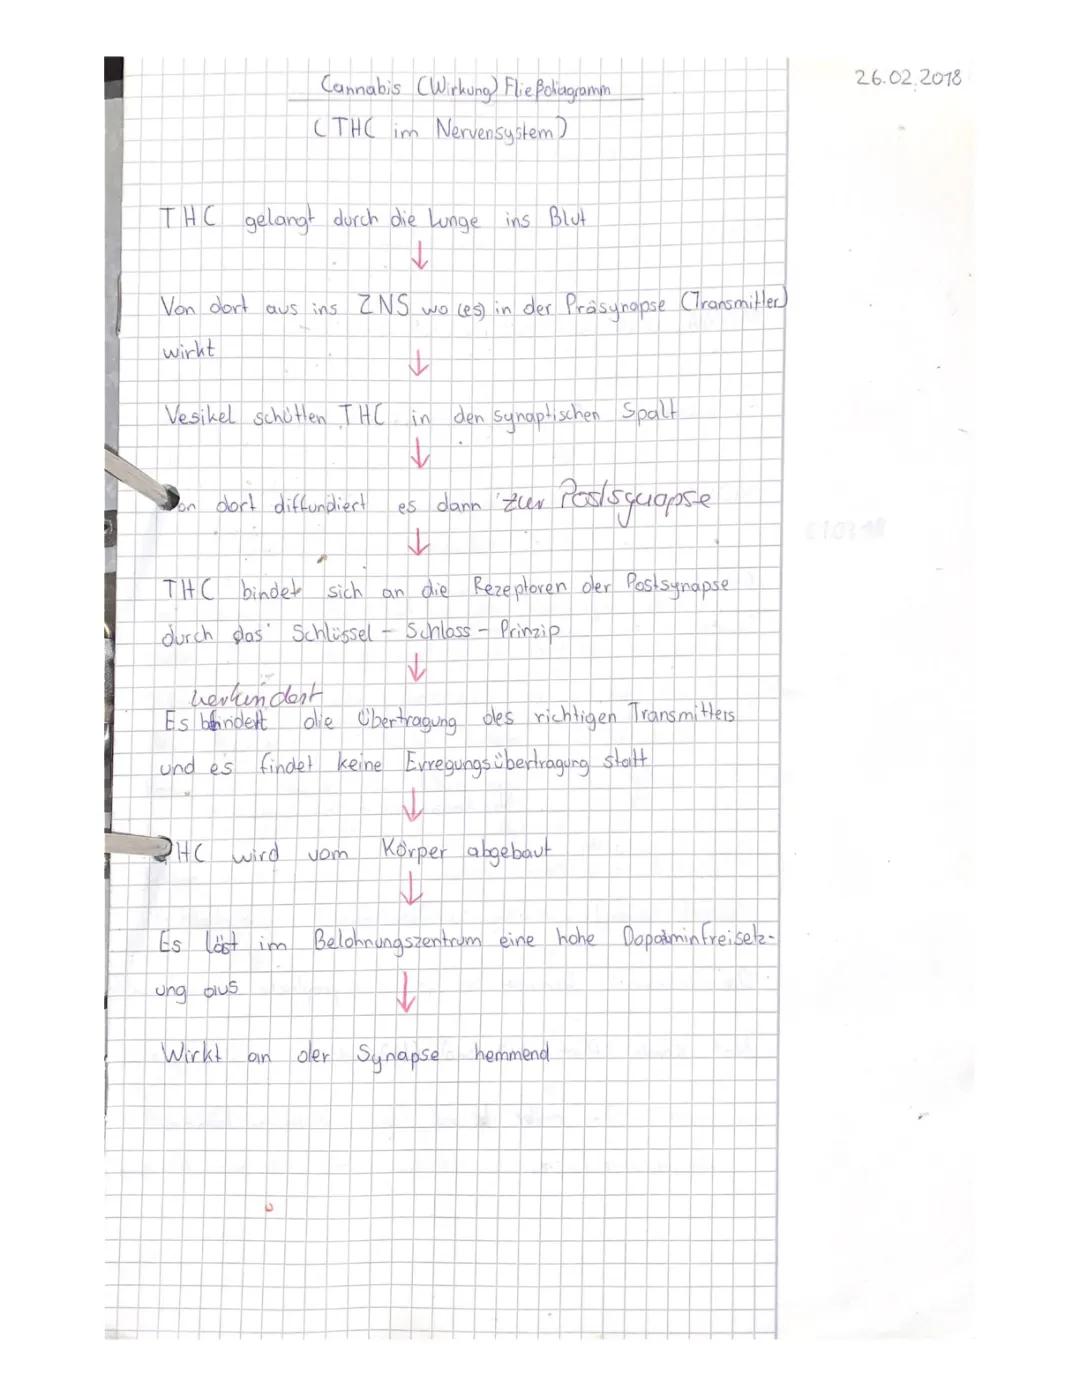 26.02.2018
Cannabis (Wirkung) Fließdiagramm
(THC im Nervensystem)
THC gelangt durch die Lunge ins Blut
↓
Von dort aus ins ZNS wo (es) in der Präsynapse (Transmitter)
wirkt
↓
Vesikel schütten THC in den synaptischen Spalt
↓
von dort diffundiert es dann zur Postsynapse
↓
THC bindet sich an die Rezeptoren der Postsynapse
durch das Schlüssel - Schloss - Prinzip
↓
verhindert
Es die Übertragung des richtigen Transmitters
und es findet keine Erregungsübertragung statt
↓
THC wird vom Körper abgebaut
↓
Es löst im Belohnungszentrum eine hohe Dopaminfreisetz-
ung aus
↓
Wirkt an der Synapse hemmend